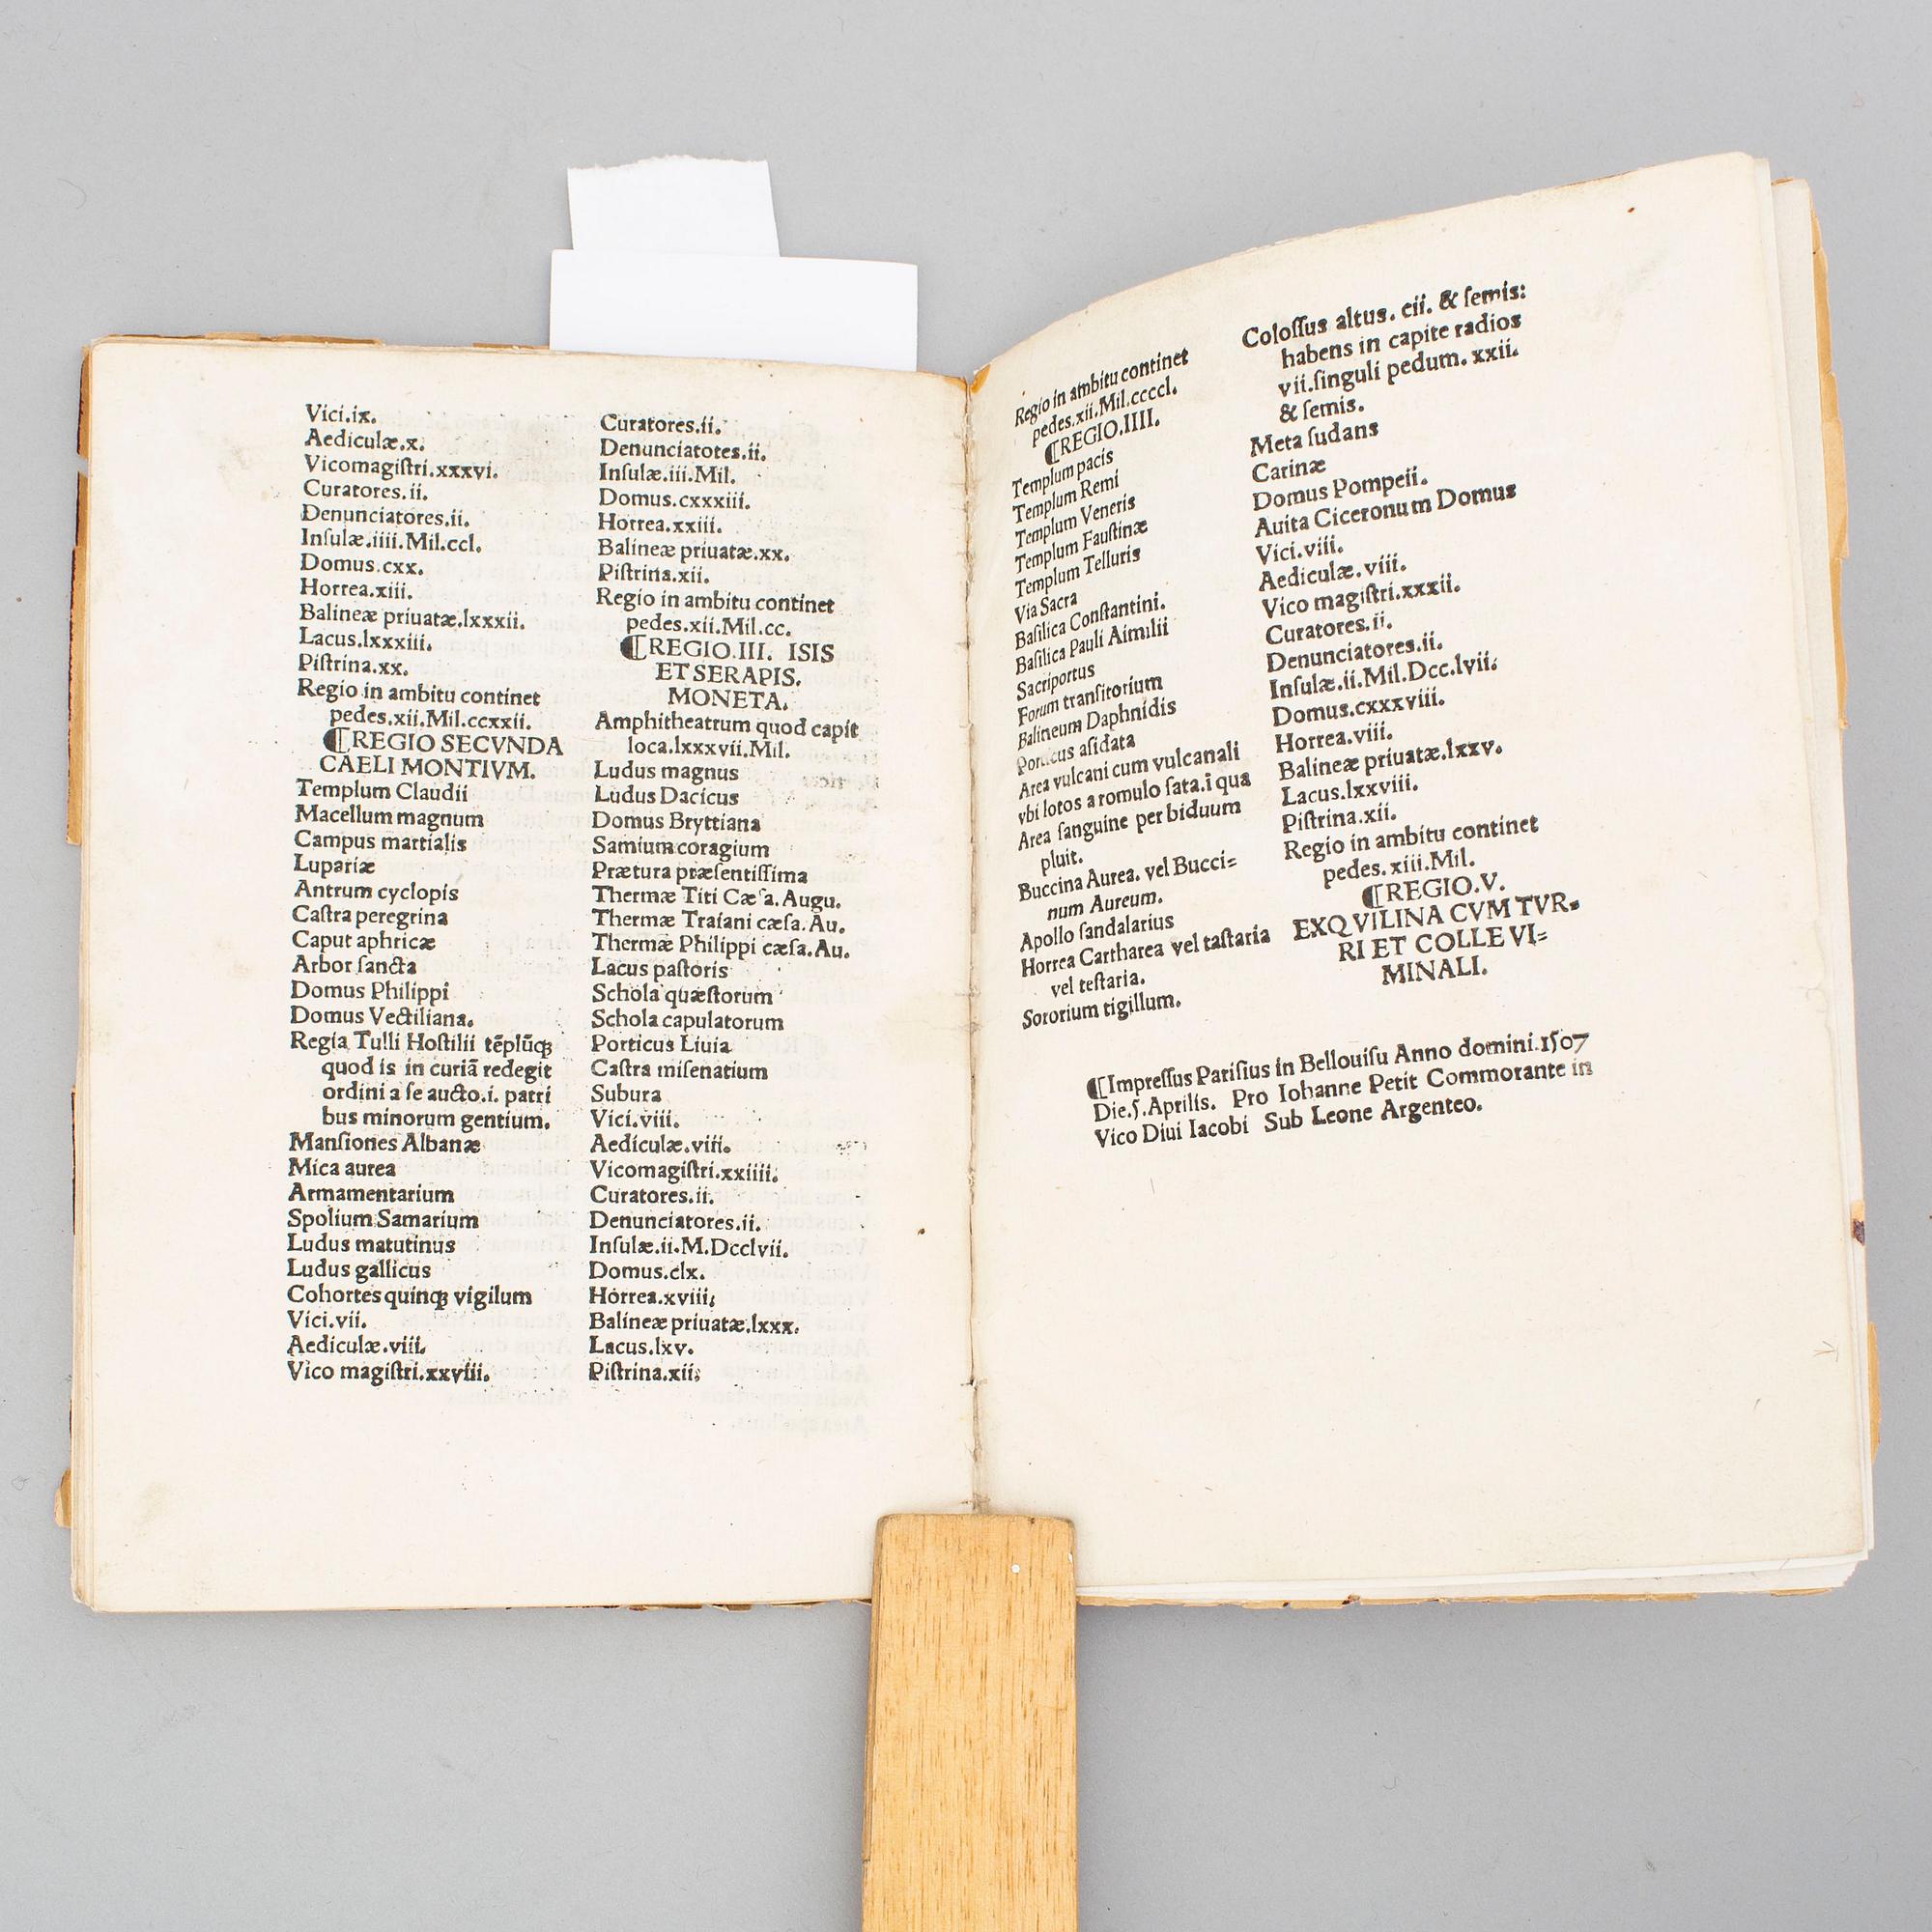 Vici.ix.
Aediculæ.x.
Vicomagiſtri.xxxvi.
Curatores.ii.
Denunciatores.ii.
Inſulæ.iiii.Mil.ccl.
Domus.cxx.
Horrea.xiii.
Balineæ priuatæ.lxxxii.
Lacus.lxxxiii.
Piſtrina.xx.
Regio in ambitu continet
pedes.xii.Mil.ccxxii.
¶REGIO SECVNDA
CAELI MONTIVM.
Templum Claudii
Macellum magnum
Campus martialis
Lupariæ
Antrum cyclopis
Caſtra peregrina
Caput aphricæ
Arbor ſancta
Domus Philippi
Domus Vectiliana.
Regia Tulli Hoſtilii tēplūqꝫ
quod is in curiā redegit
ordini a ſe aucto.i. patri
bus minorum gentium.
Manſiones Albanæ
Mica aurea
Armamentarium
Spolium Samarium
Ludus matutinus
Ludus gallicus
Cohortes quinqꝫ vigilum
Vici.vii.
Aediculæ.viii.
Vico magiſtri.xxviii.
Curatores.ii.
Denunciatotes.ii.
Inſulæ.iii.Mil.
Domus.cxxxiii.
Horrea.xxiii.
Balineæ priuatæ.xx.
Piſtrina.xii.
Regio in ambitu continet
pedes.xii.Mil.cc.
¶REGIO.III. ISIS
ET SERAPIS.
MONETA.
Amphitheatrum quod capit
loca.lxxxvii.Mil.
Ludus magnus
Ludus Dacicus
Domus Bryttiana
Samium coragium
Prætura præſentiſſima
Thermæ Titi Cæſa. Augu.
Thermæ Traiani cæſa. Au.
Thermæ Philippi cæſa. Au.
Lacus paſtoris
Schola quæſtorum
Schola capulatorum
Porticus Liuia
Caſtra miſenatium
Subura
Vici.viii.
Aediculæ.viii.
Vicomagiſtri.xxiiii.
Curatores.ii.
Denunciatores.ii.
Inſulæ.ii.M.Dcclvii.
Domus.clx.
Horrea.xviii.
Balineæ priuatæ.lxxx.
Lacus.lxv.
Piſtrina.xii.
Regio in ambitu continet
pedes.xii.Mil.ccccl.
¶REGIO.IIII.
Templum pacis
Templum Remi
Templum Veneris
Templum Fauſtinæ
Templum Telluris
Via Sacra
Baſilica Conſtantini.
Baſilica Pauli Aimilii
Sacriportus
Forum tranſitorium
Balineum Daphnidis
Porticus aſidata
Area vulcani cum vulcanali
vbi lotos a romulo ſata.ī qua
Area ſanguine per biduum
pluit.
Buccina Aurea. vel Bucci=
num Aureum.
Apollo ſandalarius
Horrea Cartharea vel taſtaria
vel teſtaria.
Sororium tigillum.
Coloſſus altus. cii. & ſemis:
habens in capite radios
vii.ſinguli pedum. xxii.
& ſemis.
Meta ſudans
Carinæ
Domus Pompeii.
Auita Ciceronum Domus
Vici.viii.
Aediculæ.viii.
Vico magiſtri.xxxii.
Curatores.ii.
Denunciatores.ii.
Inſulæ.ii.Mil.Dcc.lvii.
Domus.cxxxviii.
Horrea.viii.
Balineæ priuatæ.lxxv.
Lacus.lxxviii.
Piſtrina.xii.
Regio in ambitu continet
pedes.xiii.Mil.
¶REGIO.V.
EXQVILINA CVM TVR.
RI ET COLLE VI=
MINALI.
¶Impreſſus Pariſius in Bellouiſu Anno domini.1507
Die.5.Aprilis. Pro Iohanne Petit Commorante in
Vico Diui Iacobi Sub Leone Argenteo.